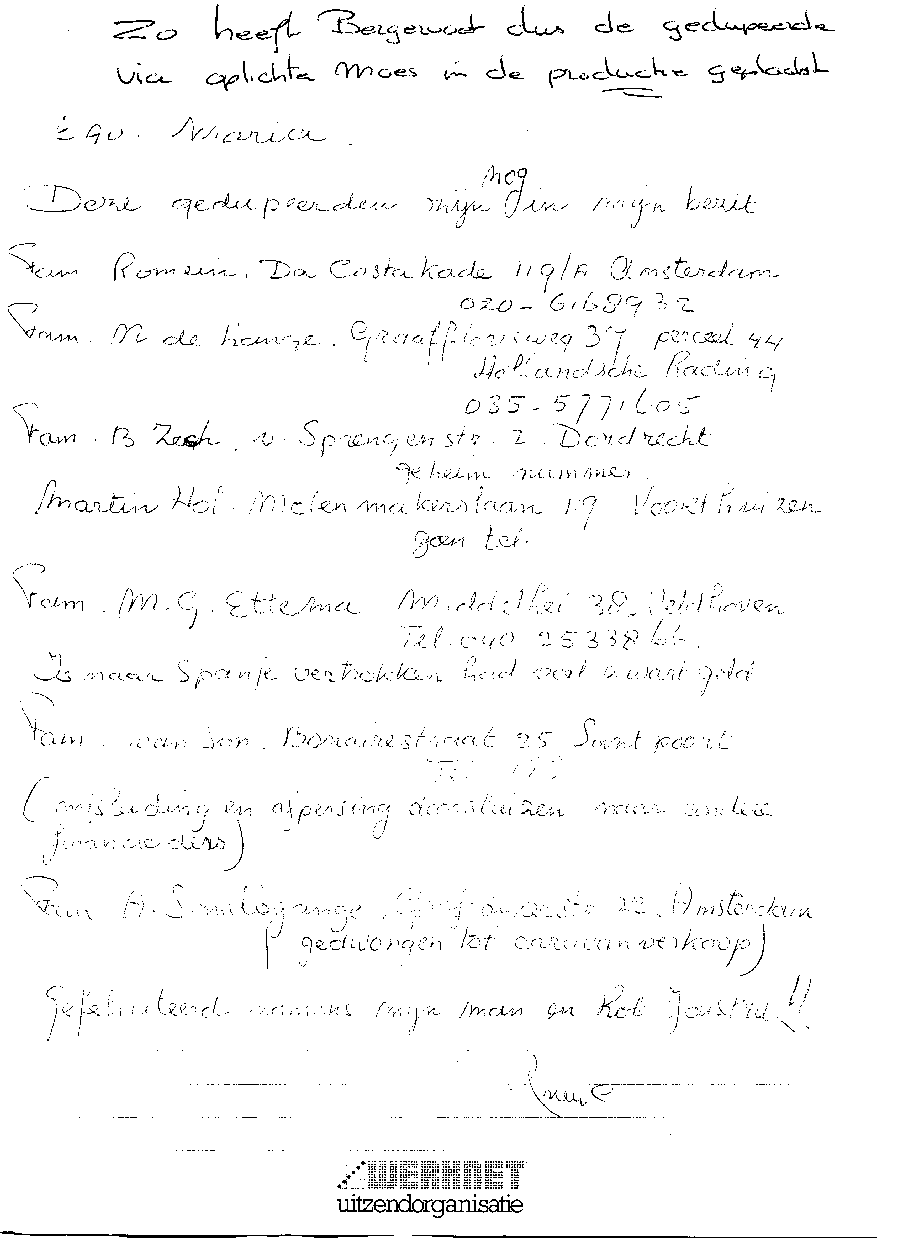 Zo heeft Bergevoet dus de gedupeerde
via oplichta Moes in de productie geplaatst
t av. Maria.
nog
Deze gedupeerden mijn in mijn bezit
Fam Romein. Da Costakade 119/A Amsterdam
020-6168932
Fam. N de Lange. Graaf Florisweg 37 perceel 44
Hollandsche Rading
035-5771605
Fam. B Zech. v. Sprengenstr. 2. Dordrecht
geheim nummer.
Martin Hol. Molenmakerslaan 19 Voorthuizen
geen tel.
Fam. M.G. Ettema Middelhei 38. Veldhoven
Tel. 040 2533866.
Is naar Spanje vertrokken had veel zwart geld
Fam. van Son. Bonairestraat 25 Santpoort
(misleiding en afpersing doorsluizen naar andere
financieerders)
Fam A. Amsterdam
(gedwongen tot caravanverkoop)
Gefeliciteerd namens mijn man en Rob !!
WERKNET
uitzendorganisatie